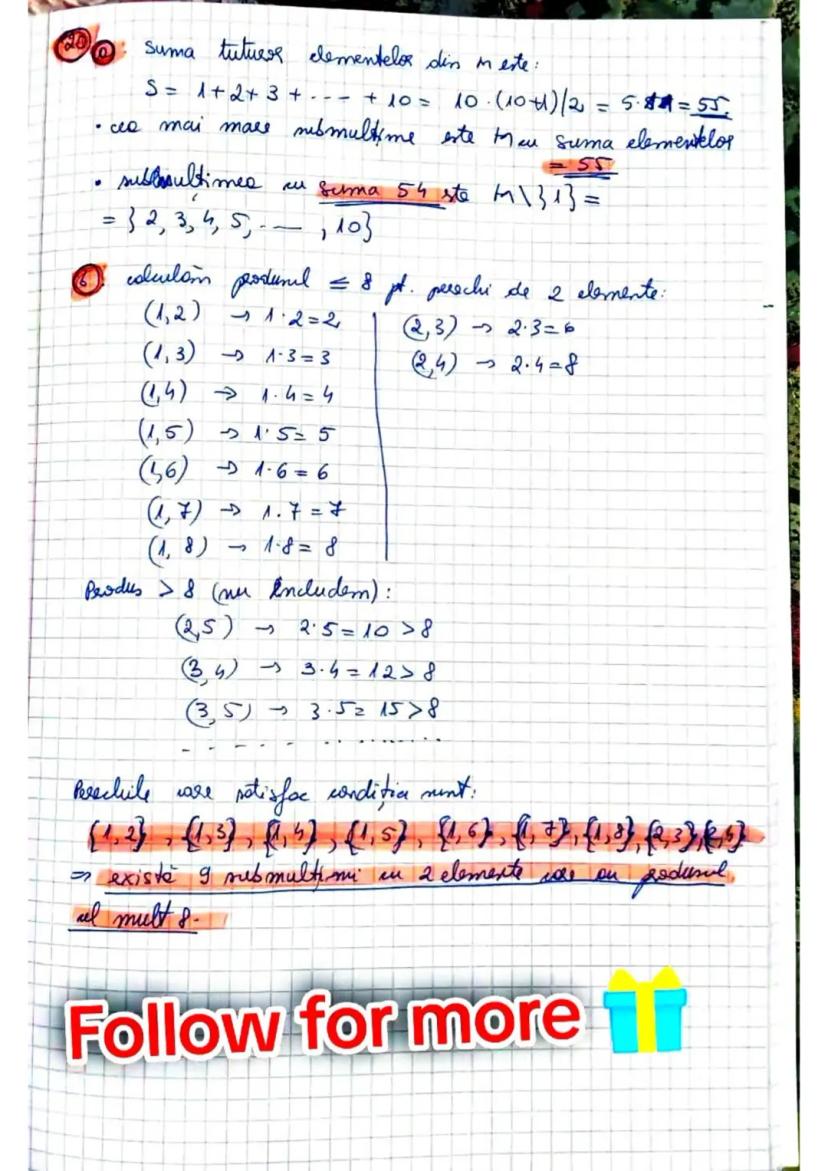 20 a: Suma tuturor elementelor din M este:
S = 1+2+3+---+10 = 10·(10+1)/2 = 5·11 = 55.
• cea mai mare submulțime este M cu suma elementelor
= 55
• submulțimea cu suma 54 este M\{1} =
= {2, 3, 4, 5, -- — , 10}
b calculăm produsul ≤ 8 pt. perechi de 2 elemente:
(1,2) → 1·2=2
(1,3) → 1·3=3
(1,4) → 1·4=4
(1,5) → 1·5=5
(1,6) → 1·6=6
(1,7) → 1·7=7
(1,8) → 1·8=8
(2,3) → 2·3=6
(2,4) → 2·4=8
Produs > 8 (nu includem):
(2,5) → 2·5=10 >8
(3,4) → 3·4=12>8
(3,5) → 3·5=15>8
- - - - - ..............
Perechile care satisfac condiția sunt:
{1,2}, {1,3}, {1,4}, {1,5}, {1,6}, {1,7}, {1,8}, {2,3}, {2,4}
⇒ există 9 submulțimi cu 2 elemente care au produsul
cel mult 8.
Follow for more